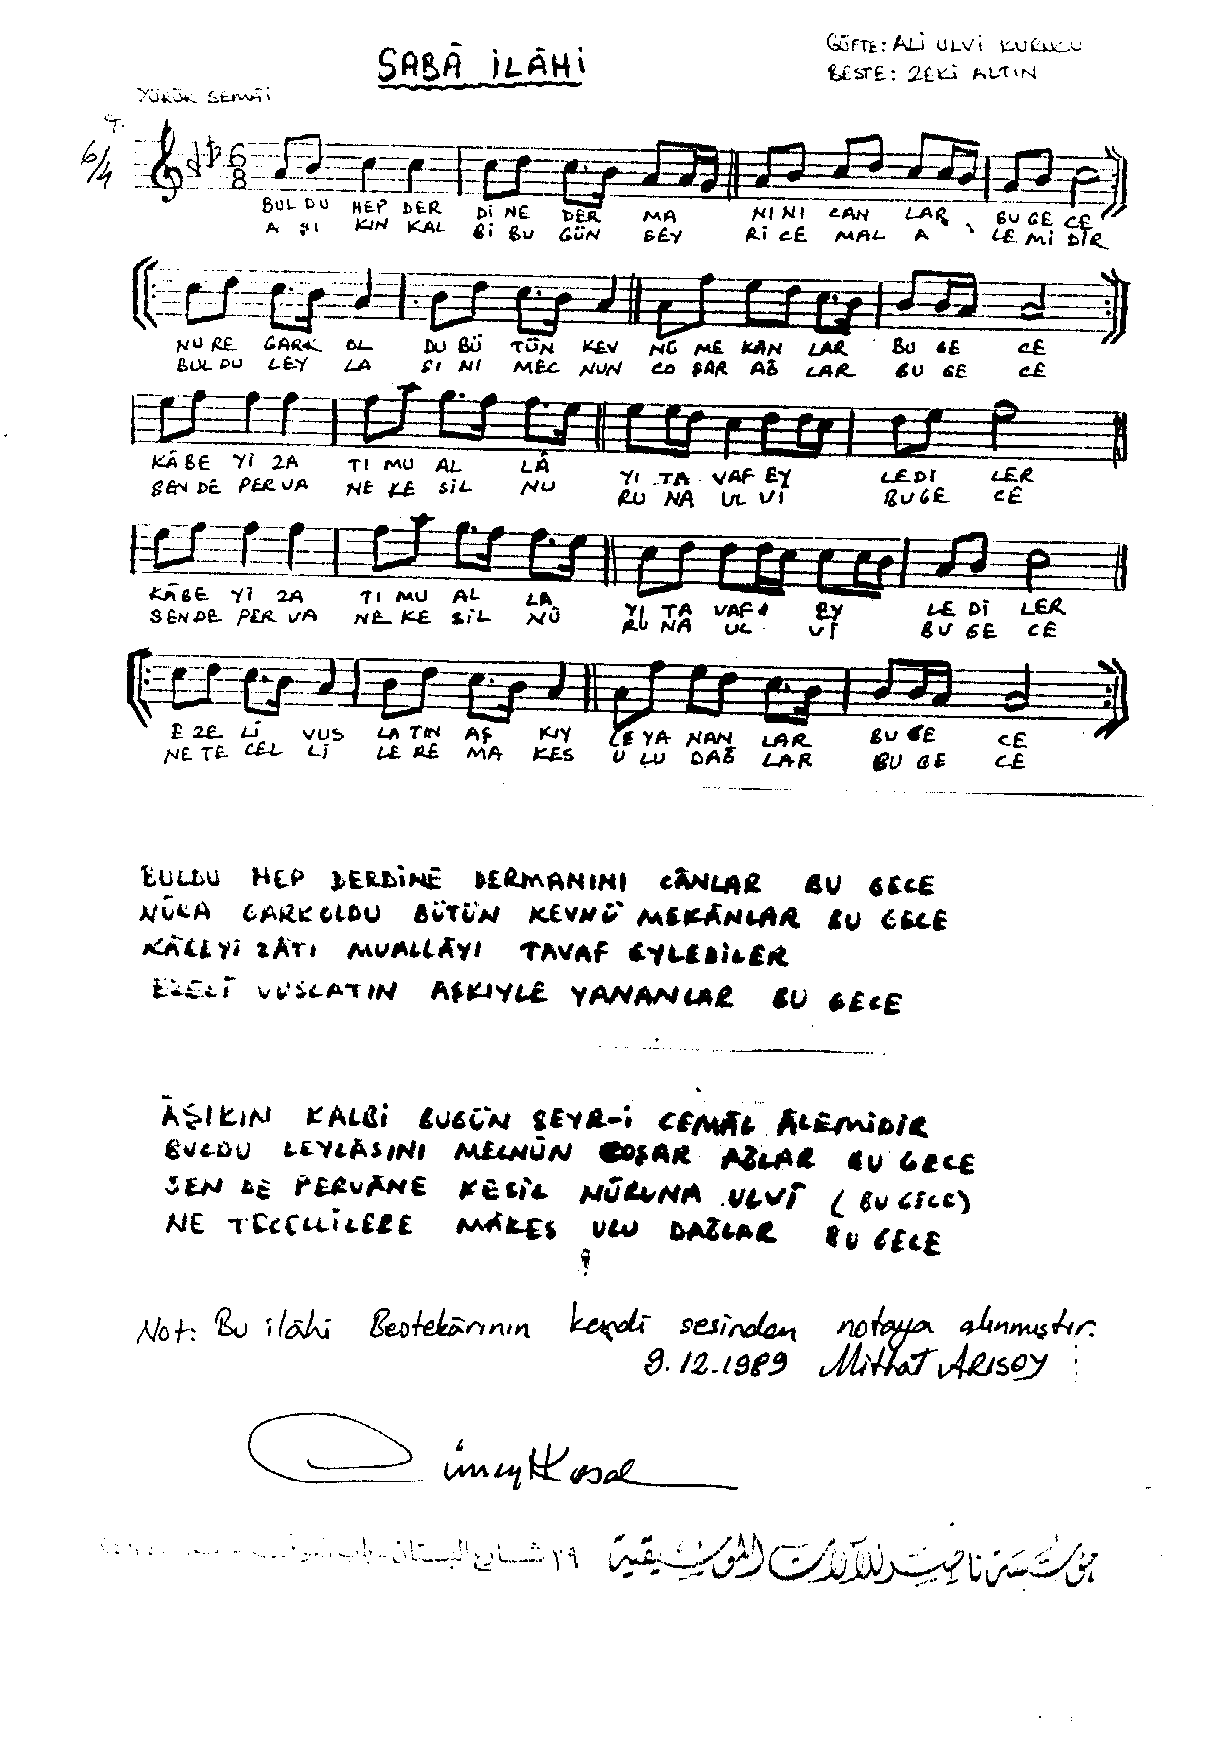 SABÂ İLÂHİ
GÜFTE: ALİ ULVİ KURUCU
BESTE: ZEKİ ALTIN
YÜRÜK SEMÂİ
6/4
6
8
BUL DU HEP DER Dİ NE DER MA NI NI CAN LAR BU GE CE
A ŞI KIN KAL Bİ BU GÜN SEY Rİ CE MAL A LE Mİ DİR
NU RE GARK OL DU BÜ TÜN KEV NÜ ME KAN LAR BU GE CE
BUL DU LEY LA SI NI MEC NUN CO ŞAR AĞ LAR BU GE CE
KÂBE Yİ ZA TI MU AL LÂ YI TA VAF EY LEDİ LER
SEN DE PERVA NE KE SİL NU RU NA UL Vİ BU GE CE
KÂBE Yİ ZA TI MU AL LA YI TA VAF EY LE Dİ LER
SEN DE PER VA NE KE SİL NÛ RU NA UL Vİ BU GE CE
E ZE Lİ VUS LA TIN AŞ KIY LE YA NAN LAR BU GE CE
NE TE CEL Lİ LE RE MA KES U LU DAĞ LAR BU GE CE
BULDU HEP DERDİNE DERMANINI CÂNLAR BU GECE
NÛRA GARKOLDU BÜTÜN KEVNÜ MEKÂNLAR BU GECE
KÂBEYİ ZÂTI MUALLÂYI TAVAF EYLEDİLER
EZELÎ VUSLATIN AŞKIYLE YANANLAR BU GECE
ÂŞIKIN KALBİ BUGÜN SEYR-İ CEMÂL ÂLEMİDİR
BULDU LEYLÂSINI MECNÛN COŞAR AĞLAR BU GECE
SEN DE PERVÂNE KESİL NÛRUNA ULVÎ (BU GECE)
NE TECELLİLERE MÂKES ULU DAĞLAR BU GECE
Not: Bu ilâhi Bestekârının kendi sesinden notaya alınmıştır.
9.12.1989 Mithat ARISOY
٢٩ شارع البستان مؤسسة ناصر للآلات الموسيقية